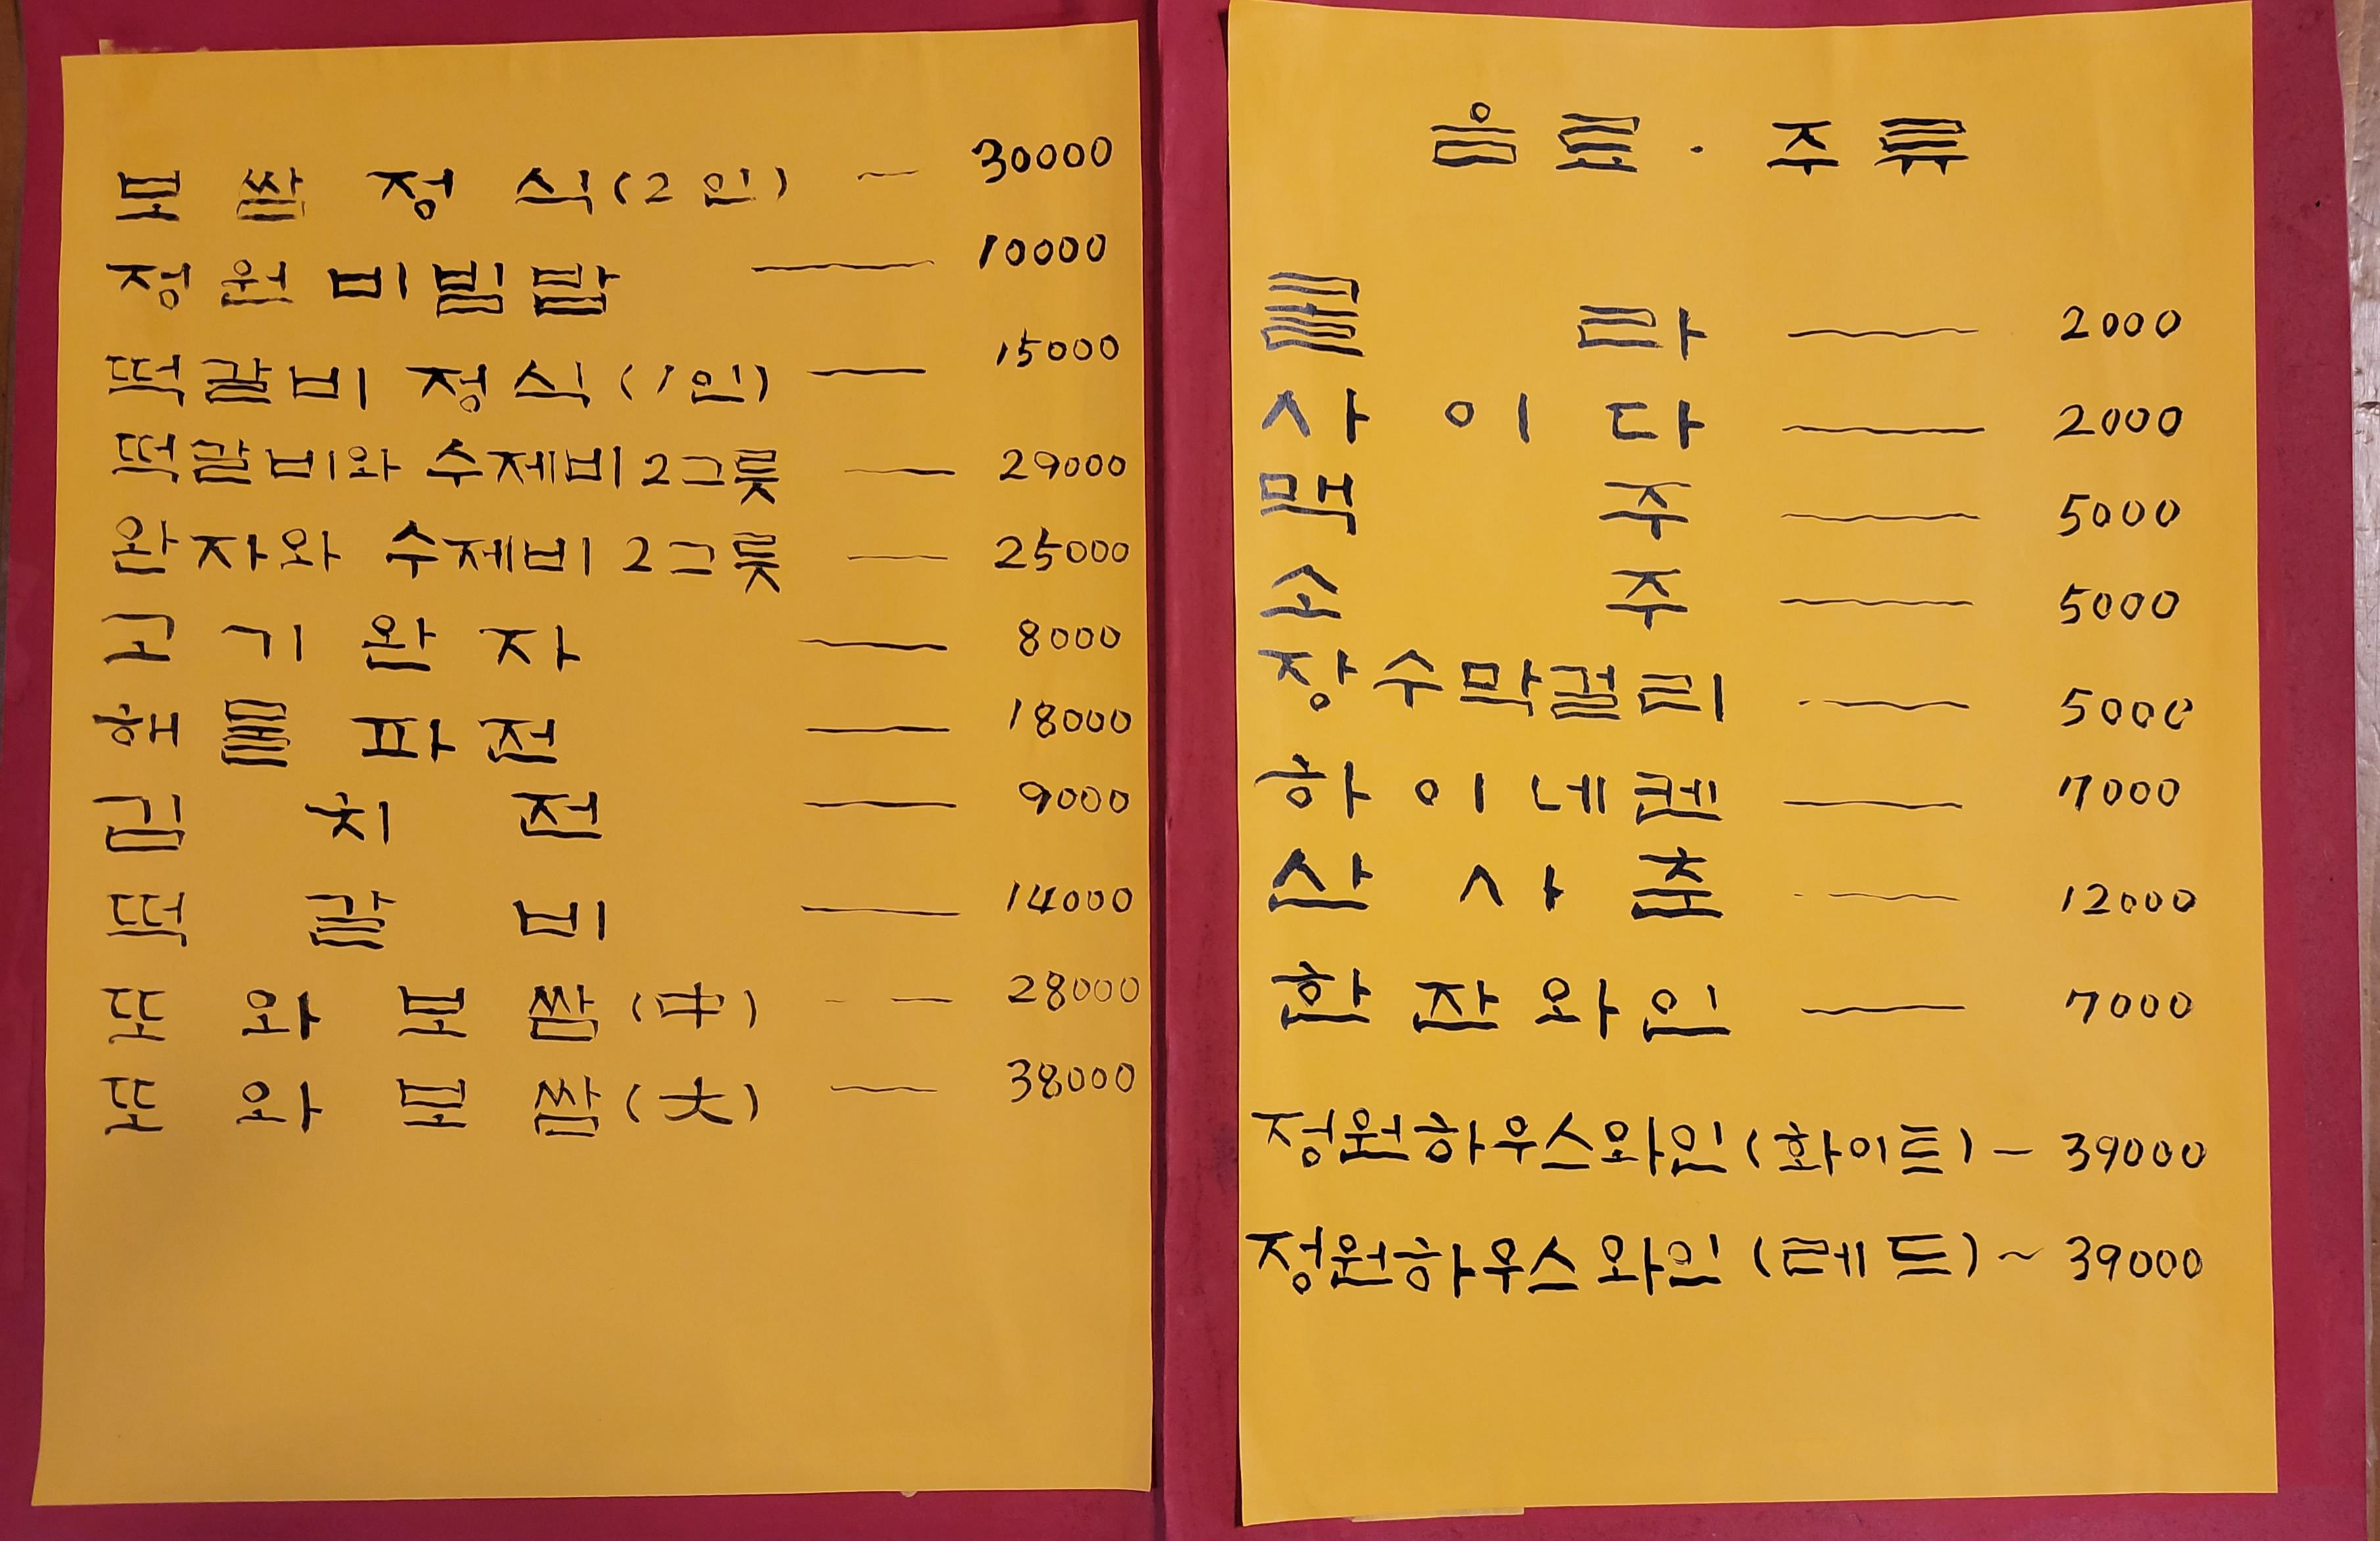 보쌈 정식(2인) — 30000
정원비빔밥 — 10000
떡갈비 정식(1인) — 15000
떡갈비와 수제비2그릇 — 29000
완자와 수제비2그릇 — 25000
고기완자 — 8000
해물파전 — 18000
김치전 — 9000
떡갈비 — 14000
또와보쌈(中) — 28000
또와보쌈(大) — 38000
음료·주류
콜라 — 2000
사이다 — 2000
맥주 — 5000
소주 — 5000
장수막걸리 — 5000
하이네켄 — 7000
산사춘 — 12000
한잔와인 — 7000
정원하우스와인(화이트) — 39000
정원하우스와인(레드) ~ 39000